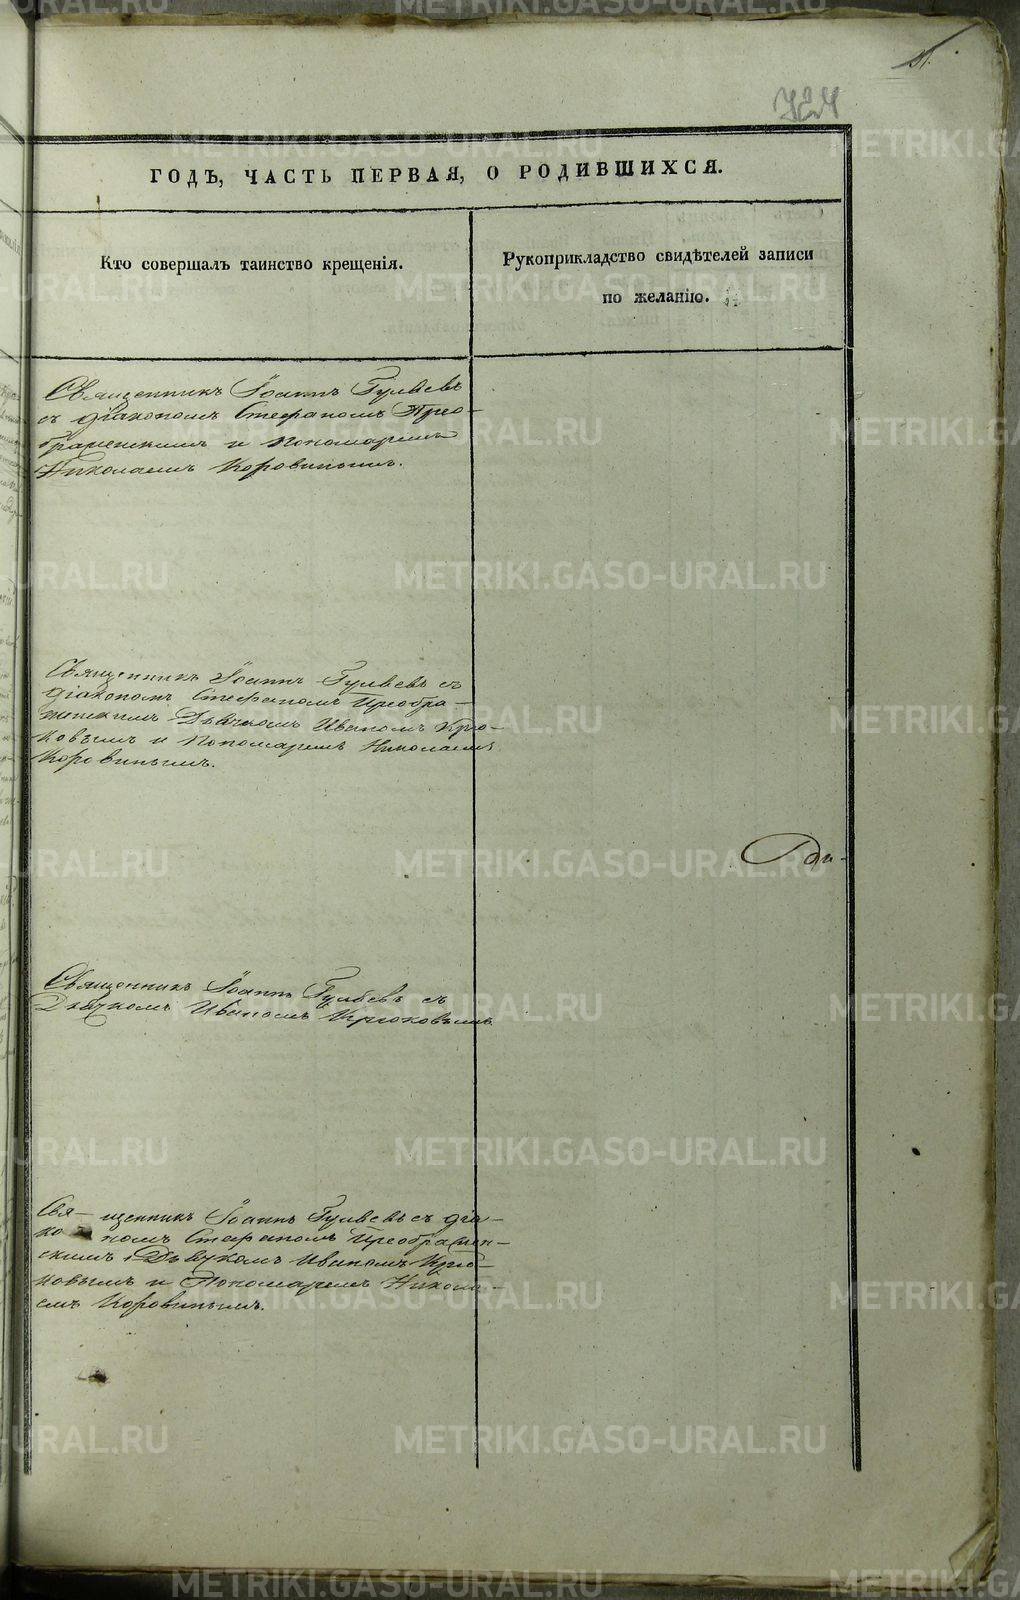 724
ГОДЪ, ЧАСТЬ ПЕРВАЯ, О РОДИВШИХСЯ.
Кто совершалъ таинство крещенія.
Рукоприкладство свидѣтелей записи
по желанію.
Священникъ Іоаннъ Гуляевъ
съ діакономъ Стефаномъ Прео-
браженскимъ и Пономаремъ
Николаемъ Коровинымъ.
Священникъ Іоаннъ Гуляевъ съ
діакономъ Стефаномъ Преобра-
женскимъ Дьячкомъ Иваномъ Крю-
ковымъ и Пономаремъ Николаемъ
Коровинымъ.
Священникъ Іоаннъ Гуляевъ съ
Дьячкомъ Иваномъ Крюковымъ.
Свя- щенникъ Іоаннъ Гуляевъ съ діа-
ко- номъ Стефаномъ Преображен-
скимъ Дьячкомъ Иваномъ Крю-
ковымъ и Пономаремъ Никола-
емъ Коровинымъ.
METRIKI.GASO-URAL.RU